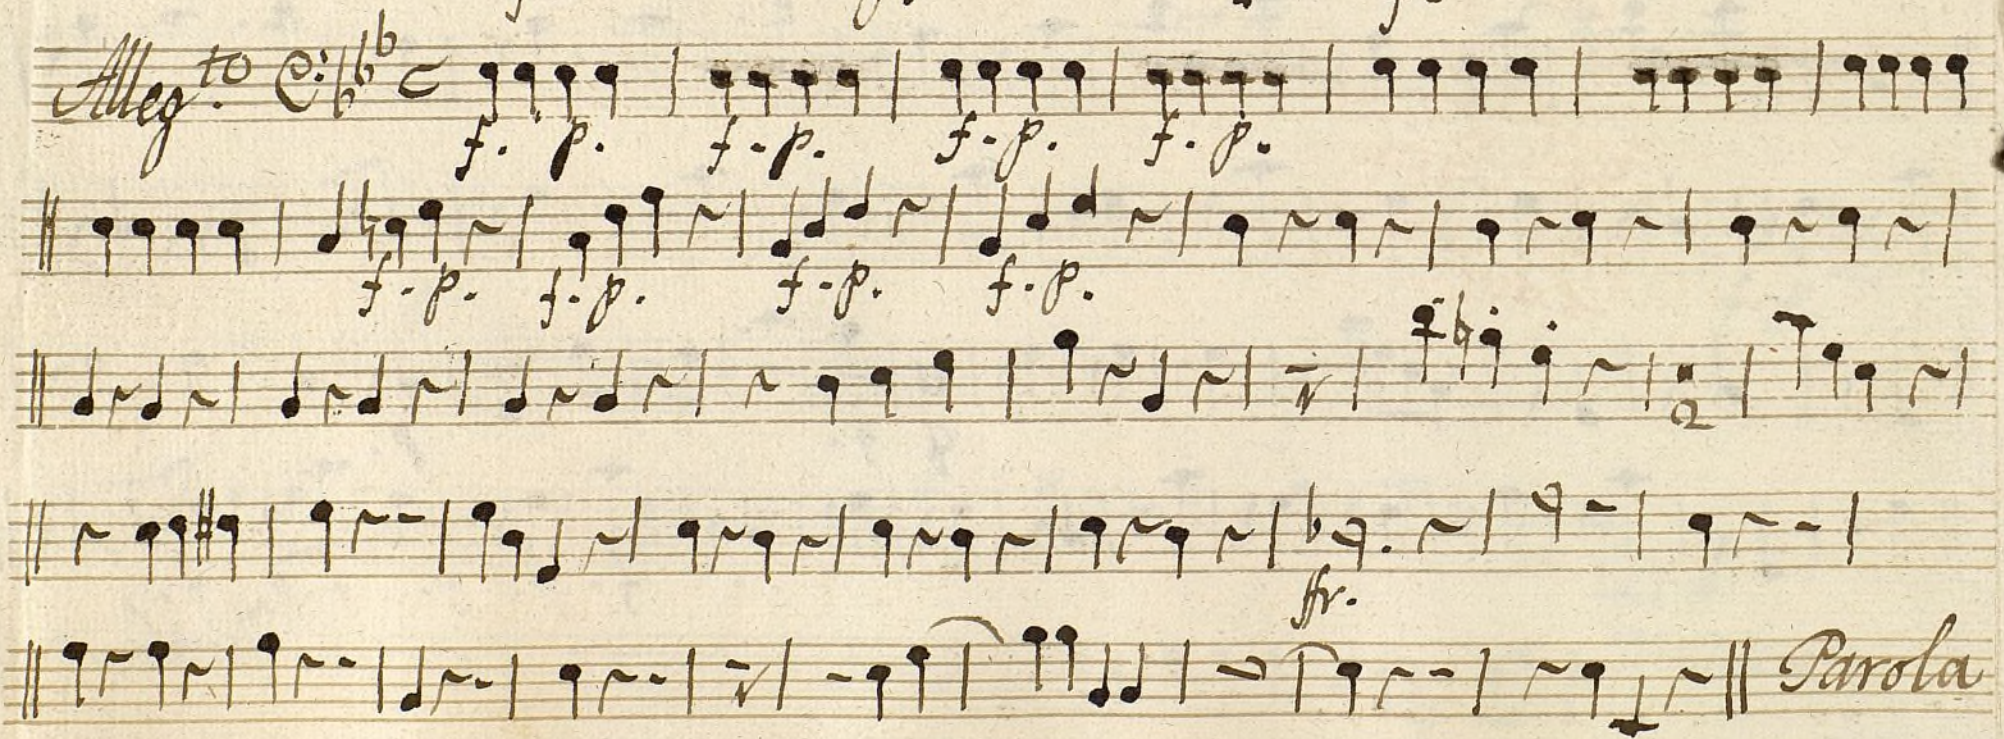 Alleg.to
f. p. f - p. f - p. f. p.
f - p. f - p. f - p. f - p.
ffr.
Parola